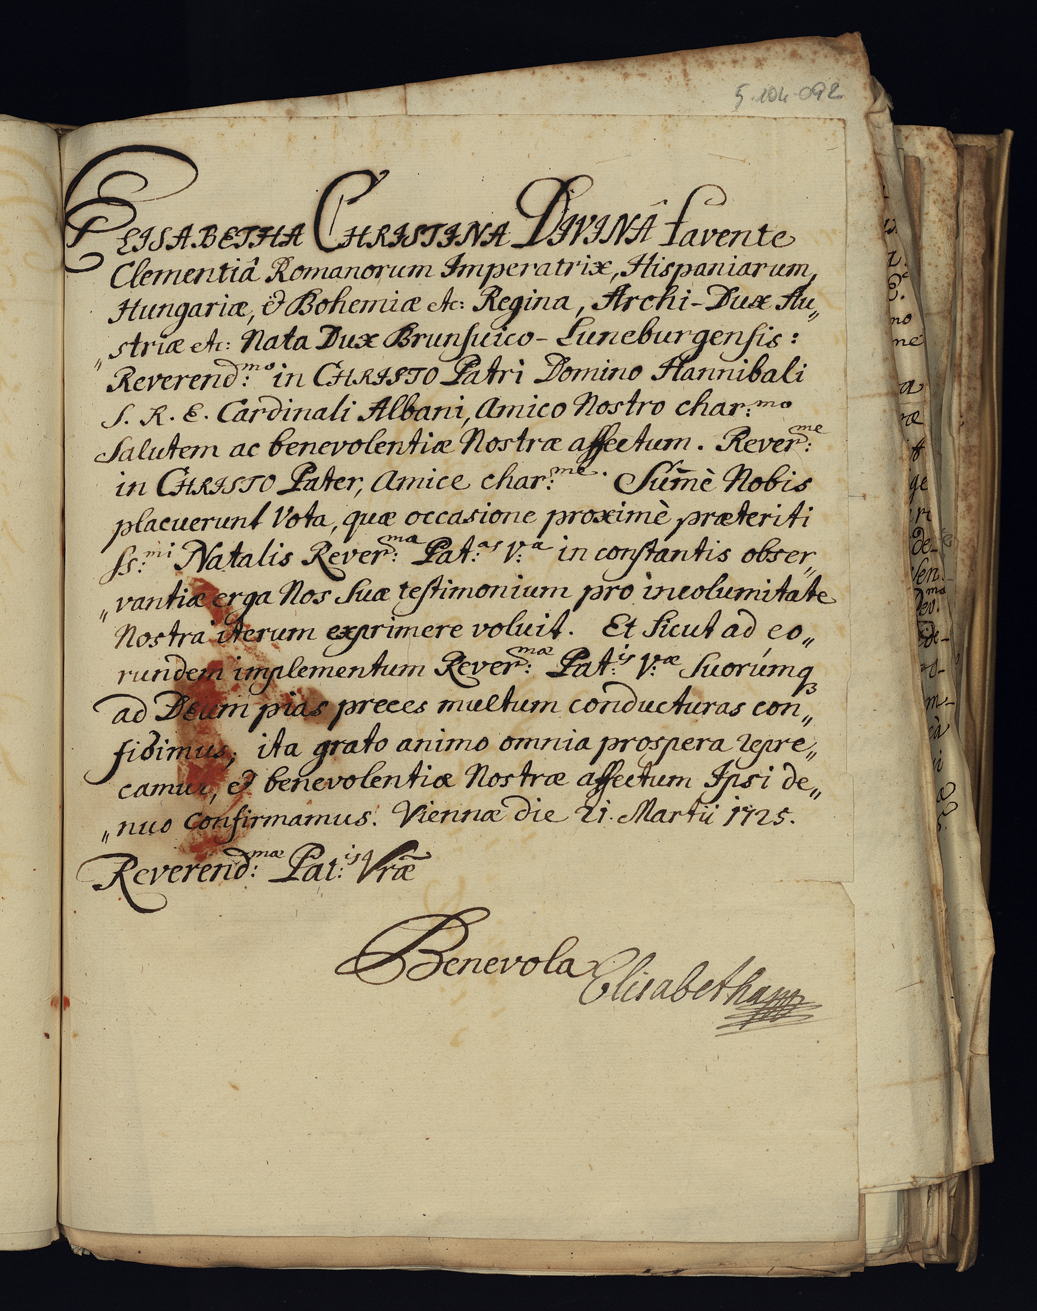 5-104-092
ELISABETHA CHRISTINA DIVINÂ favente
Clementiâ Romanorum Imperatrix, Hispaniarum,
Hungariæ, & Bohemiæ etc: Regina, Archi-Dux Au„
„striæ etc: Nata Dux Brunsuico-Luneburgensis:
Reverend:mo in CHRISTO Patri Domino Hannibali
S. R. E. Cardinali Albani, Amico Nostro char:mo
Salutem ac benevolentiæ Nostræ affectum. Rever:me
in CHRISTO Pater, Amice char:me. Sum̃è Nobis
placuerunt Vota, quæ occasione proximè præteriti
Ss:mi Natalis Rever:ma Pat:as V:a in constantis obser„
„vantiæ erga Nos Suæ testimonium pro incolumitate
Nostra iterum exprimere voluit. Et sicut ad eo„
rundem implementum Rever:mæ Pat:is V:æ Suorúmq
ad Deum pias preces multum conducturas con„
fidimus; ita grato animo omnia prospera repre„
camur, & benevolentiæ Nostræ affectum Ipsi de„
„nuo confirmamus. Viennæ die 21. Martii 1725.
Reverend:mæ Pat:is Vræ̃
Benevola
Elisabetha